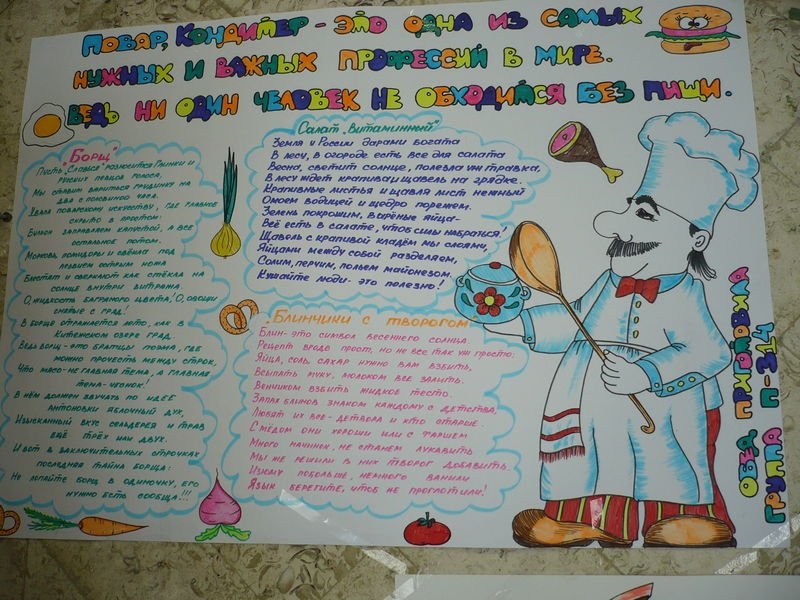 Повар, Кондитер - это одна из самых
нужных и важных профессий в мире.
Ведь ни один человек не обходится без пищи.
"Борщ"
Пусть "Славься" разносится Глинки и
русских певцов голоса,
Мы ставим вариться грудинку на
два с половиною часа.
Хвала поварскому искусству, где главное
скрыто в простом:
Бульон заправляем капустой, а все
остальное потом.
Морковь помидоры и свёкла под
лезвием острым ножа
Блестят и сверкают как стёкла на
солнце внутри витража.
О, жидкость багряного цвета! О, овощи
снятые с гряд!
В борще отражается лето, как в
Китежском озере град.
Ведь борщ - это братцы поэма, где
можно прочесть между строк,
Что мясо - не главная тема, а главная
тема - чеснок!
В нём должен звучать по идее
антоновки яблочный дух,
Изысканный вкус сельдерея и трав
ещё трёх или двух.
И вот в заключительных строчках
последняя тайна борща:
Не лопайте борщ в одиночку, его
нужно есть сообща...!!!
Салат "Витаминный"
Земля у России дарами богата
В лесу, в огороде есть все для салата
Весна, светит солнце, полезна уж травка,
В лесу ждет крапива, щавель на грядке.
Крапивные листья и щавля лист нежный
Омоем водицей и щедро порежем.
Зелень покрошим, варёные яйца-
Всё есть в салате, чтоб силы набраться!
Щавель с крапивой кладём мы слоями,
Яйцами между собой разделяем,
Солим, перчим, польем майонезом.
Кушайте люди - это полезно!
Блинчики с творогом
Блин - это символ весеннего солнца.
Рецепт вроде прост, но не все так уж просто:
Яйца, соль, сахар нужно вам взбить,
Всыпать муку, молоком все залить.
Венчиком взбить жидкое тесто.
Запах блинов знаком каждому с детства,
Любят их все - детвора и кто старше.
С мёдом они хороши или с фаршем
Много начинок, не станем лукавить
Мы же решили в них творог добавить.
Изюму побольше, немного ванили
Язык берегите, чтоб не проглотили!
Обед приготовила
группа П-314